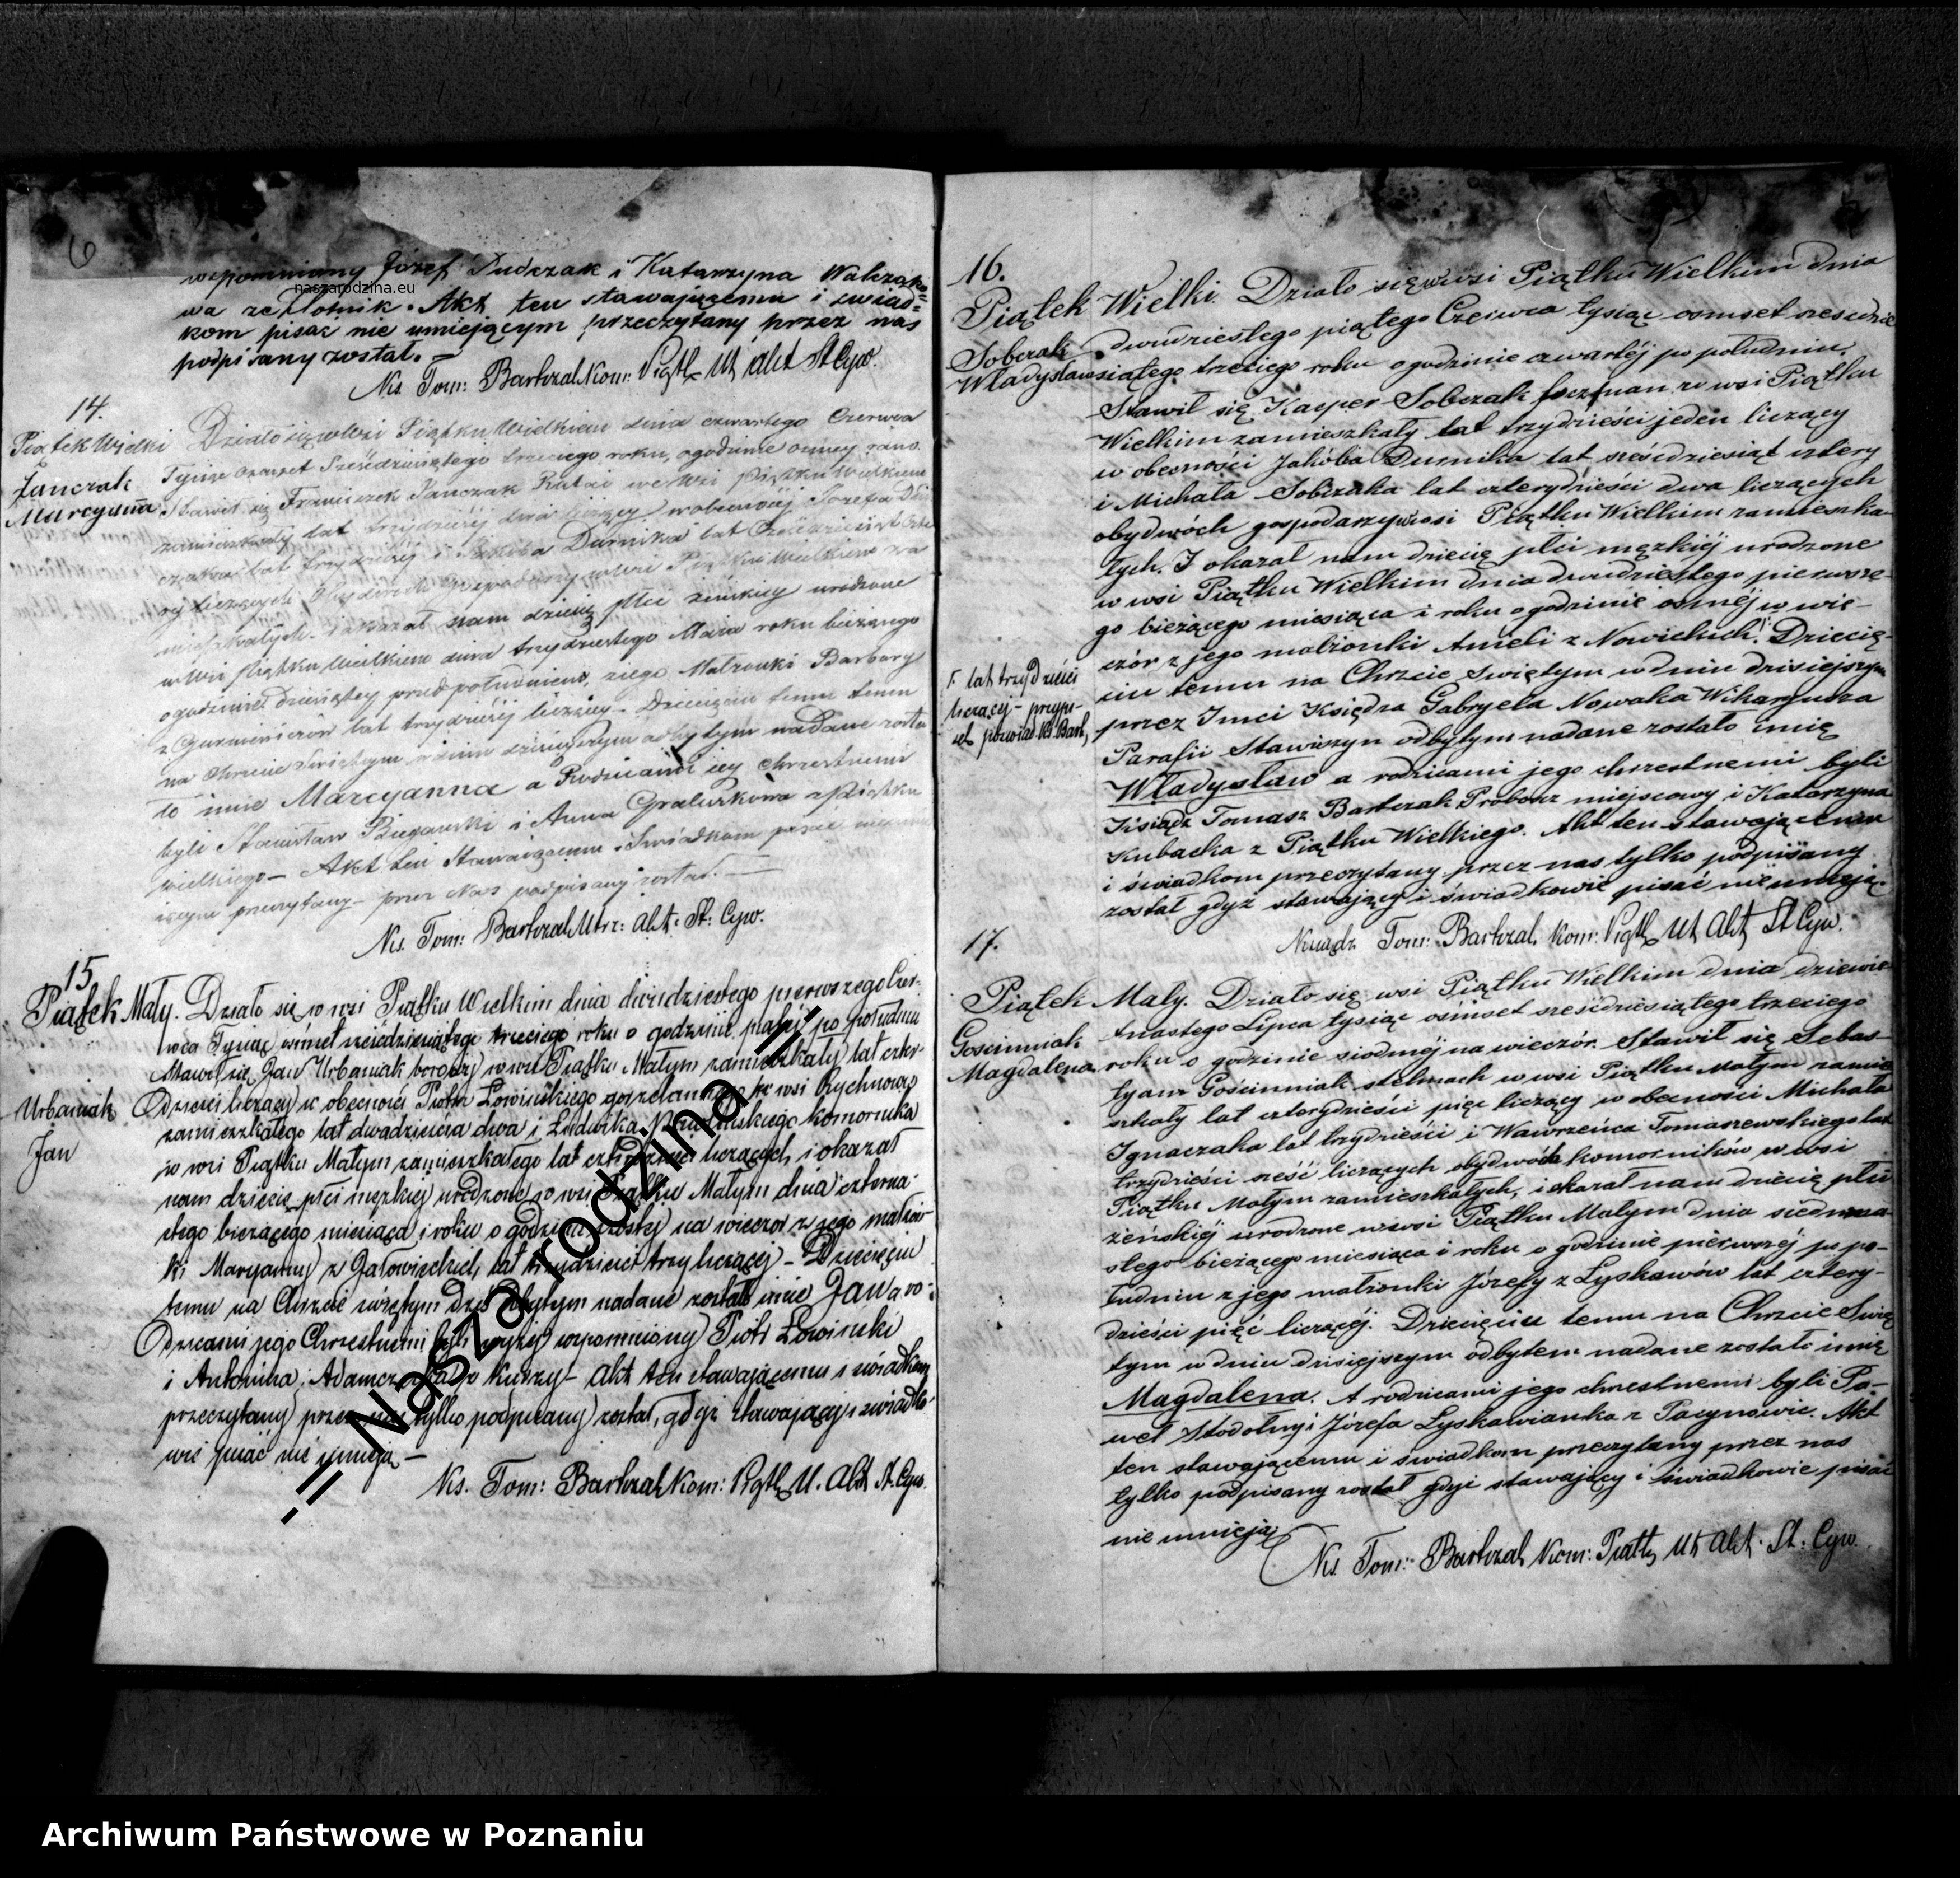 6
wspomniany Józef Dudczak i Katarzyna Walczako=
wa ze Złotnik. Akt ten stawającemu i świad=
kom pisac nie umiejącym przeczytany przez nas
podpisany został.
Ks. Tom: Bartczak Kom: Piątk. Ut akt St Cyw.
naszarodzina.eu
14.
Piątek Wielki
Janczak
Marcyanna
Działo się we Wsi Piątku Wielkiem dnia czwartego Czerwca
Tysiąc Ośmset Sześćdziesiątego trzeciego roku, o godzinie ósmey rano.
Stawił się Franciszek Janczak we Wsi Piątku Wielkiem
zamieszkały lat trzydzieści dwa liczący w obecności Józefa
czaka lat trzydzieści i Jakóba Durnika lat Sześćdziesiąt
ry liczących Gospodarzy w Wsi Piątku Wielkiem za
mieszkałych. i okazał nam dziecię płci żeńskiey urodzone
w Wsi Piątku Wielkiem dnia trzydziestego Maia roku bieżącego
o godzinie dziewiątey przed południem, z iego Małżonki Barbary
z lat trzydzieści liczącey – Dziecięciu temu
na Chrzcie Świętym w dniu dzisieyszym odbytym nadane zosta
ło imie Marcyanna a Rodzicami iey chrzestnemi
byli Stanisław Biegański i Anna z Piątku
wielkiego – Akt ten Stawaiącemu i Świadkom pisać nieumie
iącym przeczytany – przez Nas podpisany został. –
Ks. Tom: Bartczak Utrz: Akt. St: Cyw.
15
Piątek Mały.
Urbaniak
Jan
Działo się w wsi Piątku Wielkim dnia dwudziestego pierwszego Czer-
wca Tysiąc ośmset sześćdziesiątego trzeciego roku o godzinie piątej po południu
Stawił się Jan Urbaniak w wsi Piątku Małym zamieszkały lat czter-
dzieści liczący w obecności Piotra Łowińskiego w wsi Rychnowo
zamieszkałego lat dwadzieścia dwa i Ludwika komornika
w wsi Piątku Małym zamieszkałego lat czterdzieści liczących i okazał
nam dziecię płci męzkiej urodzone w wsi Piątku Małym dnia czterna-
stego bieżącego miesiąca i roku o godzinie szóstej na wieczór z jego małżon-
ki Maryanny z Gałowieckich lat trzydzieści trzy liczącej – Dziecięciu
temu na Chrzcie świętym dziś odbytym nadane zostało imie Jan a ro-
dzicami jego Chrzestnemi byli wyżej wspomniony Piotr Łowiński
i Antonina Adamczewska z Kuźnicy – Akt ten stawającemu i świadkom
przeczytany przez nas tylko podpisany został, gdyż stawający i świadko-
wie pisać nie umieją –
Ks. Tom: Bartczak Kom: Piątk. U. Akt St. Cyw.
.:: Nasza rodzina ::.
16.
Piątek Wielki.
Sobczak
Władysław
Działo się w wsi Piątku Wielkim dnia
dwudziestego piątego Czerwca tysiąc osmset szesćdzie
siątego trzeciego roku o godzinie czwartéj po południu.
Stawił się Kasper Sobczak ze wsi Piątku
Wielkim zamieszkały lat trzydzieści jeden liczący
w obecności Jakóba Durnika lat sześćdziesiąt cztery
i Michała Sobczaka lat czterydzieści dwa liczących
obydwóch gospodarzy w wsi Piątku Wielkim zamieszka-
łych. I okazał nam dziecię płci męzkiéj urodzone
w wsi Piątku Wielkim dnia dwudziestego pierwsze-
go bieżącego miesiąca i roku o godzinie osméj w wie-
czór z jego małżonki Anieli z Nowickich. Dziecię-
ciu temu na Chrzcie Swiętym w dniu dzisiejszym
przez Imci Księdza Gabryela Nowaka Wikaryusza
Parafii Stawiszyn odbytym nadane zostało imię
Władysław a rodzicami jego chrzestnemi byli
Ksiądz Tomasz Bartczak Proboszcz miejscowy i Katarzyna
Kubacka z Piątku Wielkiego. Akt ten stawającemu
i świadkom przeczytany przez nas tylko podpisany
został gdyż stawający i świadkowie pisać nie umieją.
Ksiądz Tom: Bartczak Kom: Piątk. Ut Akt St Cyw.
lat trzydzieści
liczącej – przypi-
sek poświad. Ks. Bart,
17.
Piątek Mały.
Gościnniak
Magdalena
Działo się wsi Piątku Wielkim dnia dziewie
tnastego Lipca tysiąc ośmset sześćdziesiątego trzeciego
roku o godzinie siodméj na wieczór. Stawił się Sebas-
tyan Gościnniak stelmach w wsi Piątku Małym zamie
szkały lat czterydzieści pięc liczący w obecności Michała
Ignaczaka lat trzydzieści i Wawrzeńca Tomaszewskiego lat
trzydzieści sześć liczących obydwóch komorników w wsi
Piątku Małym zamieszkałych, i okazał nam dziecię płci
żeńskiéj urodzone w wsi Piątku Małym dnia siedmna-
stego bieżącego miesiąca i roku o godzinie pierwszéj po po-
łudniu z jego małżonki Józefy z Łyskawów lat cztery-
dzieści pięć liczącéj. Dziecięciu temu na Chrzcie Swię
tym w dniu dzisiejszym odbytem nadane zostało imię
Magdalena. A rodzicami jego chrzestnemi byli Pa-
weł Stodolny i Józefa Łyskawianka z Pacynowic. Akt
ten stawającemu i świadkom przeczytany przez nas
tylko podpisany został gdyż stawający i świadkowie pisać
nie umieją
Ks. Tom: Bartczak Kom: Piątk. Ut Akt. St: Cyw.
Archiwum Państwowe w Poznaniu